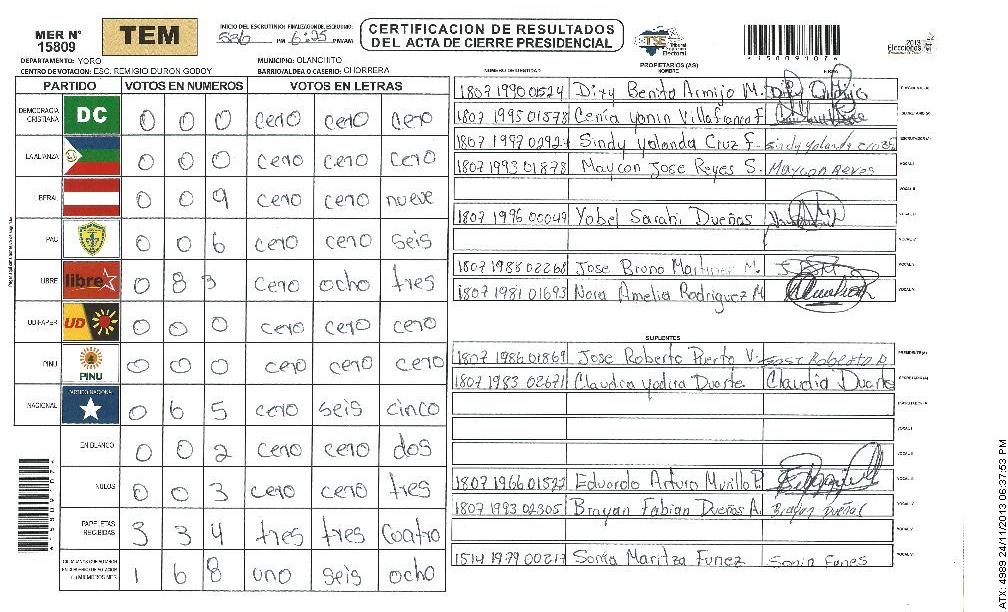 MER N°
15809
TEM
INICIO DEL ESCRUTINIO: FINALIZACION DEL ESCRUTINIO:
PM 6:25 PM/AM
CERTIFICACION DE RESULTADOS
DEL ACTA DE CIERRE PRESIDENCIAL
TSE Tribunal Supremo Electoral
2013
Elecciones
DEPARTAMENTO: YORO
MUNICIPIO: OLANCHITO
CENTRO DE VOTACION: ESC. REMIGIO DURON GODOY
BARRIO/ALDEA O CASERIO: CHORRERA
PARTIDO VOTOS EN NUMEROS VOTOS EN LETRAS
DEMOCRACIA CRISTIANA DC 0 0 0 cero cero cero
LA ALIANZA 0 0 0 cero cero cero
BERAL 0 0 9 cero cero nueve
PAC 0 0 6 cero cero seis
LIBRE libre 0 8 3 cero ocho tres
UD/FAPER UD 0 0 0 cero cero cero
PINU PINU 0 0 0 cero cero cero
NACIONAL PARTIDO NACIONAL 0 6 5 cero seis cinco
EN BLANCO 0 0 2 cero cero dos
NULOS 0 0 3 cero cero tres
PAPELETAS RECIBIDAS 3 3 4 tres tres cuatro
1 6 8 uno seis ocho
PROPIETARIOS (AS)
NUMERO DE IDENTIDAD NOMBRE FIRMA
1807 1990 01524 Diry Benito Armijo M.
1807 1995 01578 Cenia Yonin Villafranca F.
1807 1997 02924 Sindy Yolanda Cruz F. Sindy Yolanda Cruz F
1807 1993 01878 Maycon Jose Reyes S. Maycon Reyes
1807 1996 00049 Yobel Sarahi Dueñas
1807 1988 02268 Jose Bruno Martinez M.
1807 1981 01693 Nora Amelia Rodriguez M
SUPLENTES
1807 1986 01869 Jose Roberto Puerto V. Jose Roberto P
1807 1983 02671 Claudia Yadira Duarte Claudia Duarte
1807 1966 01522 Eduardo Arturo Murillo P.
1807 1993 02305 Brayan Fabian Dueñas A. Brayan Dueñas
1514 1979 00217 Sonia Maritza Funez Sonia Funes
4 1 5 8 0 9 1 0 7 6
ATX: 4989 24/11/2013 06:37:53 PM